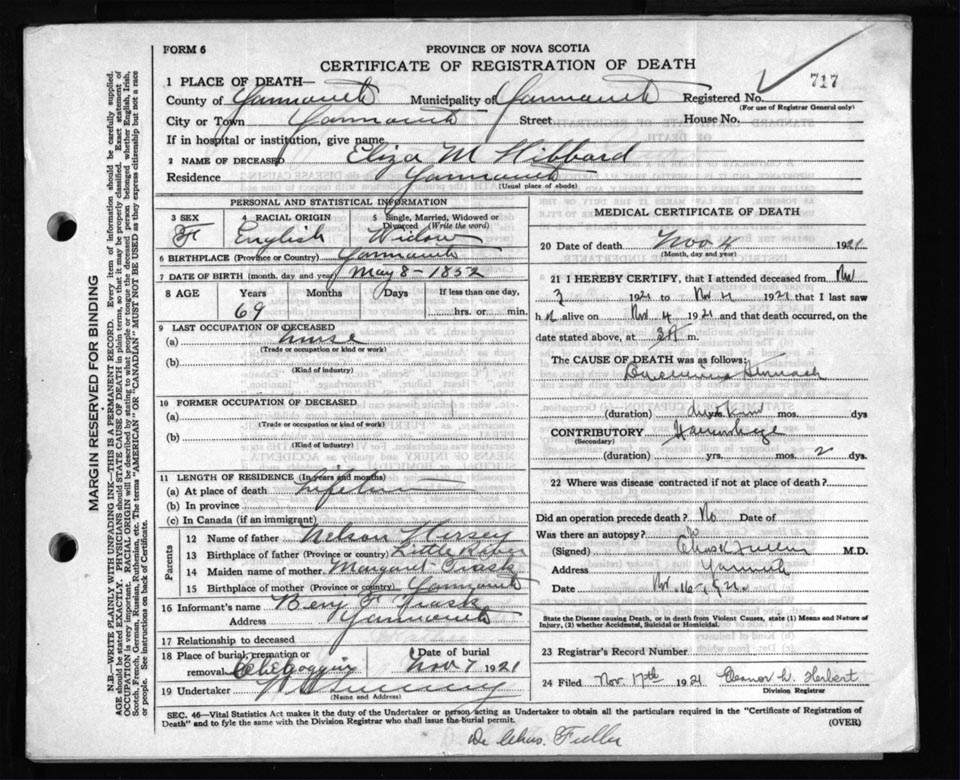 FORM 6
PROVINCE OF NOVA SCOTIA
CERTIFICATE OF REGISTRATION OF DEATH
717
1 PLACE OF DEATH—
County of Yarmouth Municipality of Yarmouth Registered No.
(For use of Registrar General only)
City or Town Yarmouth Street House No.
If in hospital or institution, give name
2 NAME OF DECEASED Eliza M Hibbard
Residence Yarmouth
(Usual place of abode)
PERSONAL AND STATISTICAL INFORMATION
3 SEX 4 RACIAL ORIGIN 5 Single, Married, Widowed or Divorced (Write the word)
F English Widow
6 BIRTHPLACE (Province or Country) Yarmouth
7 DATE OF BIRTH (month, day and year) May 8 - 1852
8 AGE Years Months Days If less than one day,
69 hrs. or min.
9 LAST OCCUPATION OF DECEASED
(a) nurse
(Trade or occupation or kind or work)
(b)
(Kind of industry)
10 FORMER OCCUPATION OF DECEASED
(a)
(Trade or occupation or kind or work)
(b)
(Kind of industry)
11 LENGTH OF RESIDENCE (In years and months)
(a) At place of death Lifetime
(b) In province
(c) In Canada (if an immigrant)
Parents
12 Name of father Nelson Hersey
13 Birthplace of father (Province or country) Little River
14 Maiden name of mother Margaret Trask
15 Birthplace of mother (Province or country) Yarmouth
16 Informant's name Trask
Address Yarmouth
17 Relationship to deceased
18 Place of burial, cremation or removal Date of burial
Nov 7 1921
19 Undertaker
(Name and Address)
MEDICAL CERTIFICATE OF DEATH
20 Date of death Nov 4 1921
(Month, day and year)
21 I HEREBY CERTIFY, that I attended deceased from Nov
3 1921 to Nov 4 1921 that I last saw
h alive on Nov. 4 1921 and that death occurred, on
date stated above, at 3 m.
The CAUSE OF DEATH was as follows:
Stomach
(duration) mos. dys
CONTRIBUTORY Haemorrhage
(Secondary)
(duration) yrs. mos. 2 dys.
22 Where was disease contracted if not at place of death?
Did an operation precede death? No Date of
Was there an autopsy? No
(Signed) Chas Fuller M.D.
Address Yarmouth
Date Nov. 16
State the Disease causing Death, or in death from Violent Causes, state (1) Means and Nature of Injury, (2) whether Accidental, Suicidal or Homicidal.
23 Registrar's Record Number
24 Filed Nov. 17th 1921 Eleanor L. Herbert
Division Registrar
SEC. 46—Vital Statistics Act makes it the duty of the Undertaker or person acting as Undertaker to obtain all the particulars required in the "Certificate of Registration of
Death" and to fyle the same with the Division Registrar who shall issue the burial permit. (OVER)
Dr Chas. Fuller
MARGIN RESERVED FOR BINDING
N.B.—WRITE PLAINLY WITH UNFADING INK—THIS IS A PERMANENT RECORD. Every item of information should be carefully supplied.
AGE should be stated EXACTLY. PHYSICIANS should STATE CAUSE OF DEATH in plain terms, so that it may be properly classified. Exact statement of
OCCUPATION is very important. RACIAL ORIGIN will be described by stating to what people or tongue the deceased person belonged whether English, Irish,
Scotch, French, German, Russian, Ruthenian, etc. The terms "AMERICAN" or "CANADIAN" MUST NOT BE USED as they express citizenship but not a race
or people. See instructions on back of Certificate.